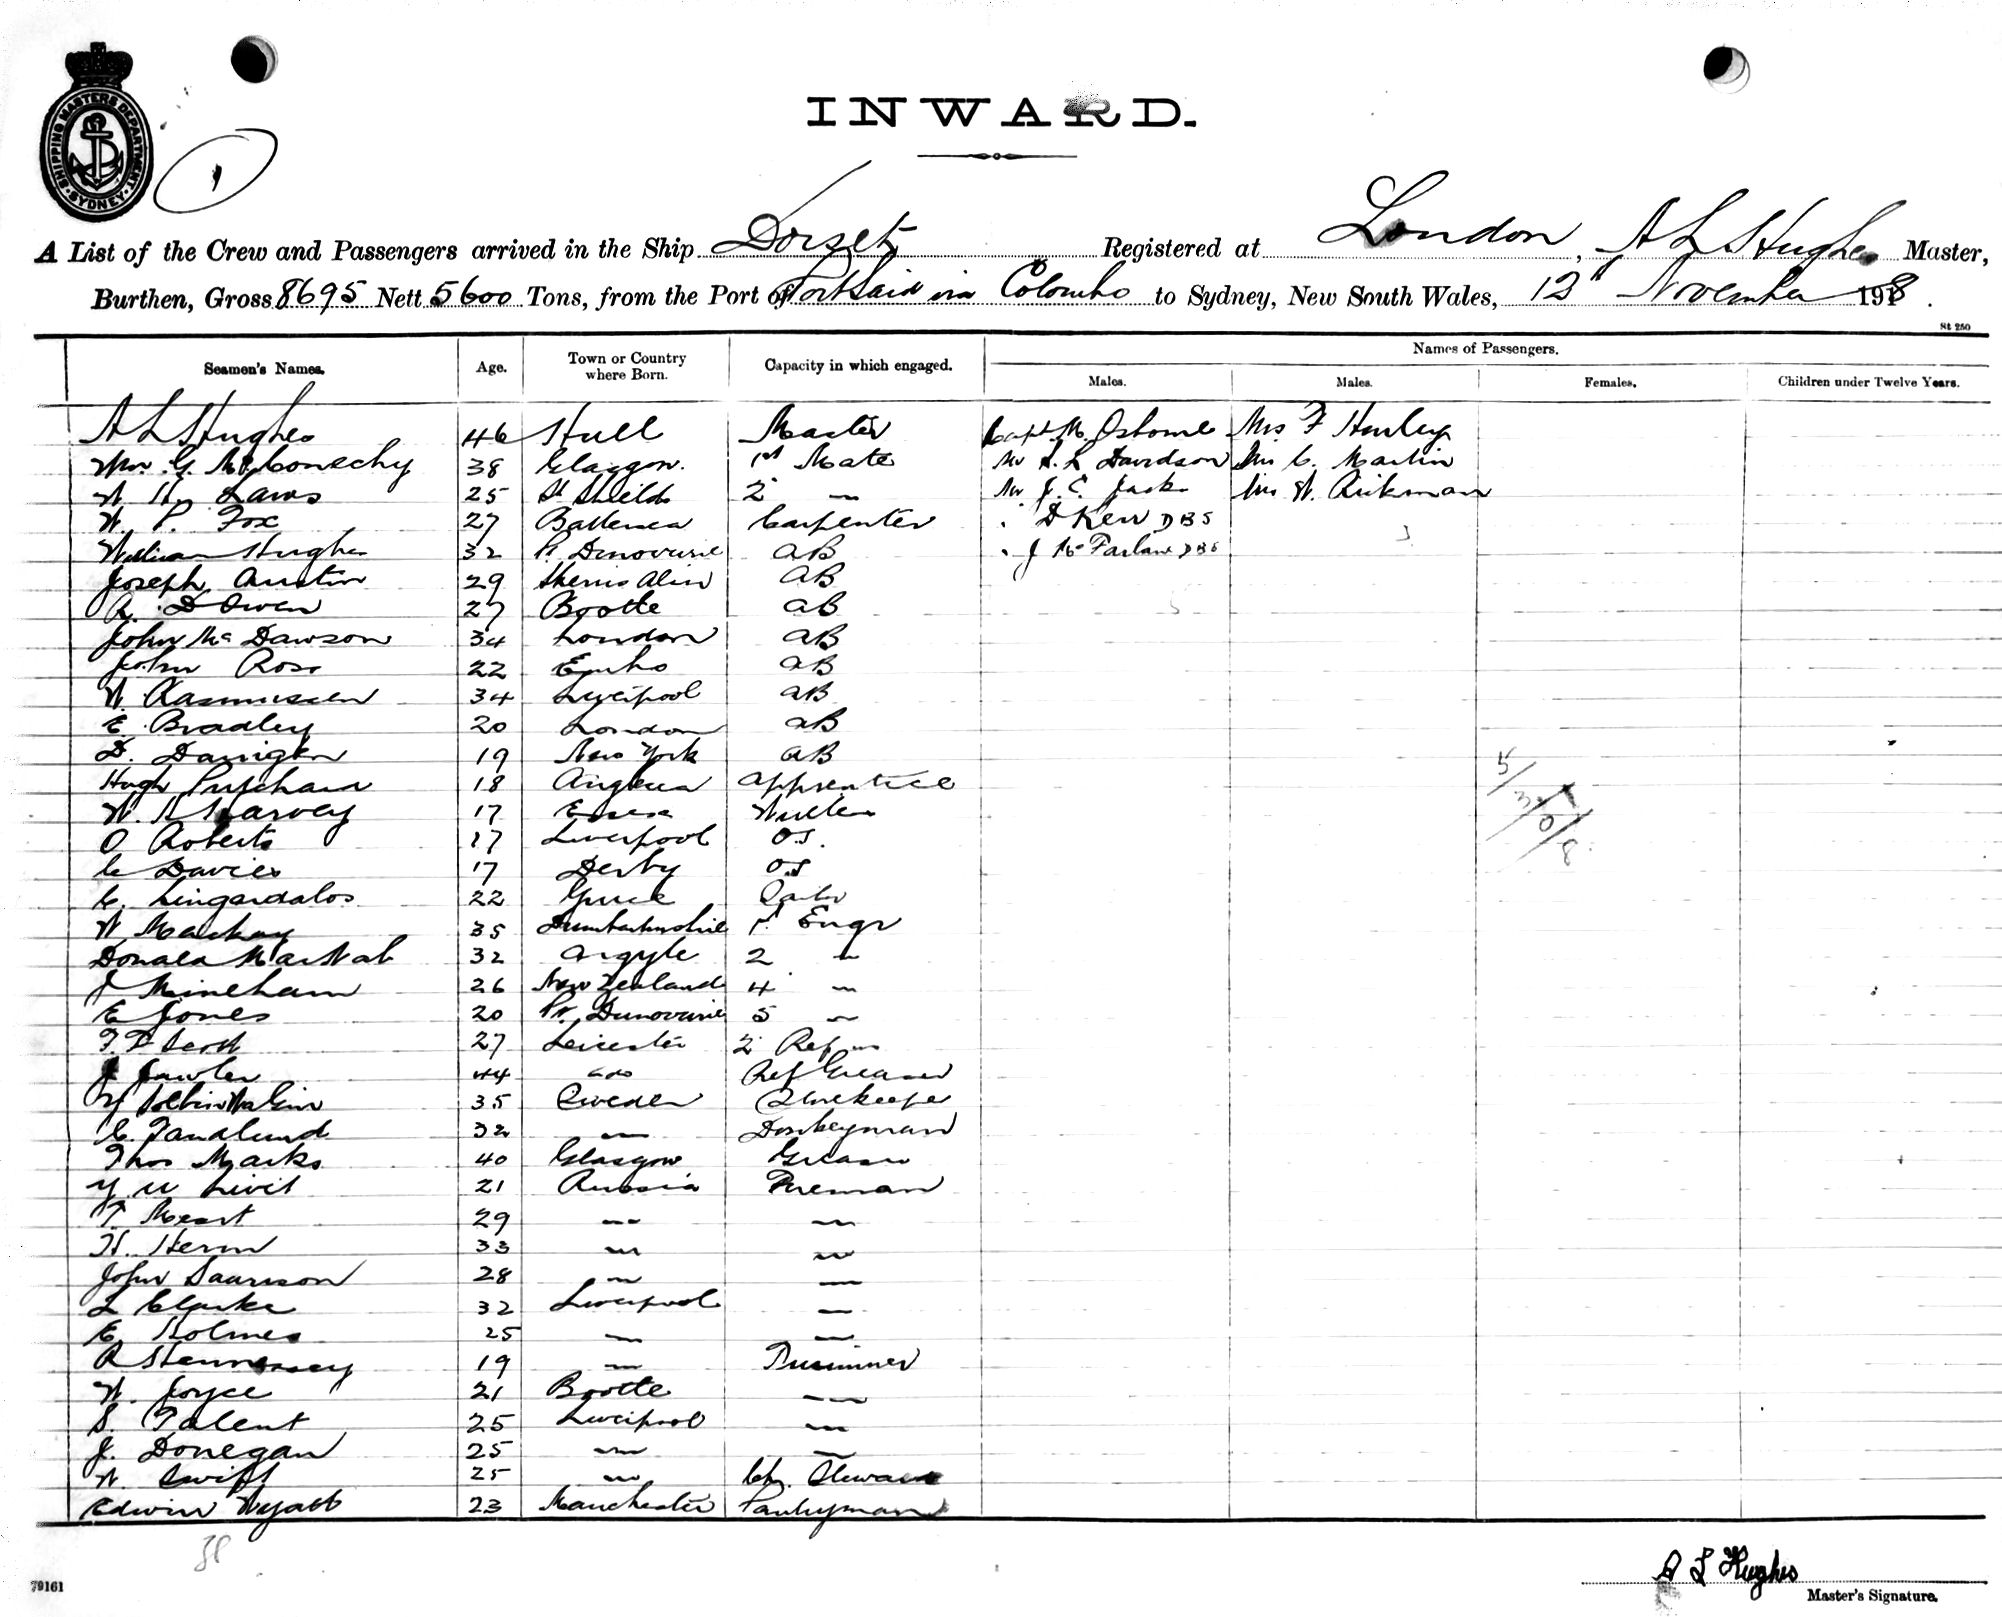 SHIPPING MASTERS DEPARTMENT
SYDNEY
1
INWARD.
A List of the Crew and Passengers arrived in the Ship Dorset Registered at London, A L Hughes Master,
Burthen, Gross 8695 Nett 5600 Tons, from the Port of Port Said via Colombo to Sydney, New South Wales, 12th November 1918.
St 250
Seamen's Names. Age. Town or Country where Born. Capacity in which engaged. Names of Passengers.
Males. Males. Females. Children under Twelve Years.
A L Hughes 46 Hull Master Capt. M. Osborne Mrs F Hurley
Wm. G. McConechy 38 Glasgow. 1st Mate Mr A. L Davidson Mrs C. Martin
W. H. Laws 25 St Shields 2 " Mr J. C. Jack Mrs W. Aikman
W. P. Fox 27 Battersea Carpenter " D Kerr DBS
William Hughes 32 Pt Dinorwic AB " J McFarlane DBS
Joseph Austin 29 AB
R. D Owen 27 Bootle AB
John Mc Dawson 34 London AB
John Ross 22 Embo AB
W. Rasmussen 34 Liverpool AB
E. Bradley 20 London AB
D. 19 New York AB
Hugh Pritchard 18 Anglesea apprentice
W. R Harvey 17 Essex
O Roberts 17 Liverpool O.S.
C Davies 17 Derby O.S
C. Lingardalos 22 Greece
W Mackay 35 Dumbartonshire 1st Engr
Donald MacNab 32 Argyle 2 "
J Mineham 26 New Zealand 4 "
E Jones 20 Pt. Dinorwic 5 "
F. F Scott 27 Leicester 2 Ref "
J Fowler 44 do Ref Greaser
35 Sweden Storekeeper
C. Tandlund 32 " Donkeyman
Thos Marks 40 Glasgow Greaser
21 Russia Fireman
T. Meart 29 " "
H. Herm 33 " "
John Saurson 28 " "
L Clarke 32 Liverpool "
E. Holmes 25 " "
R Hennessey 19 " Trimmer
W. Joyce 21 Bootle "
S. Talent 25 Liverpool "
J. Donegan 25 " "
W Swift 25 " Ch. Steward
Edwin Wyatt 23 Manchester Pantryman
5/3/0/8
38
79161
A L Hughes
Master's Signature.